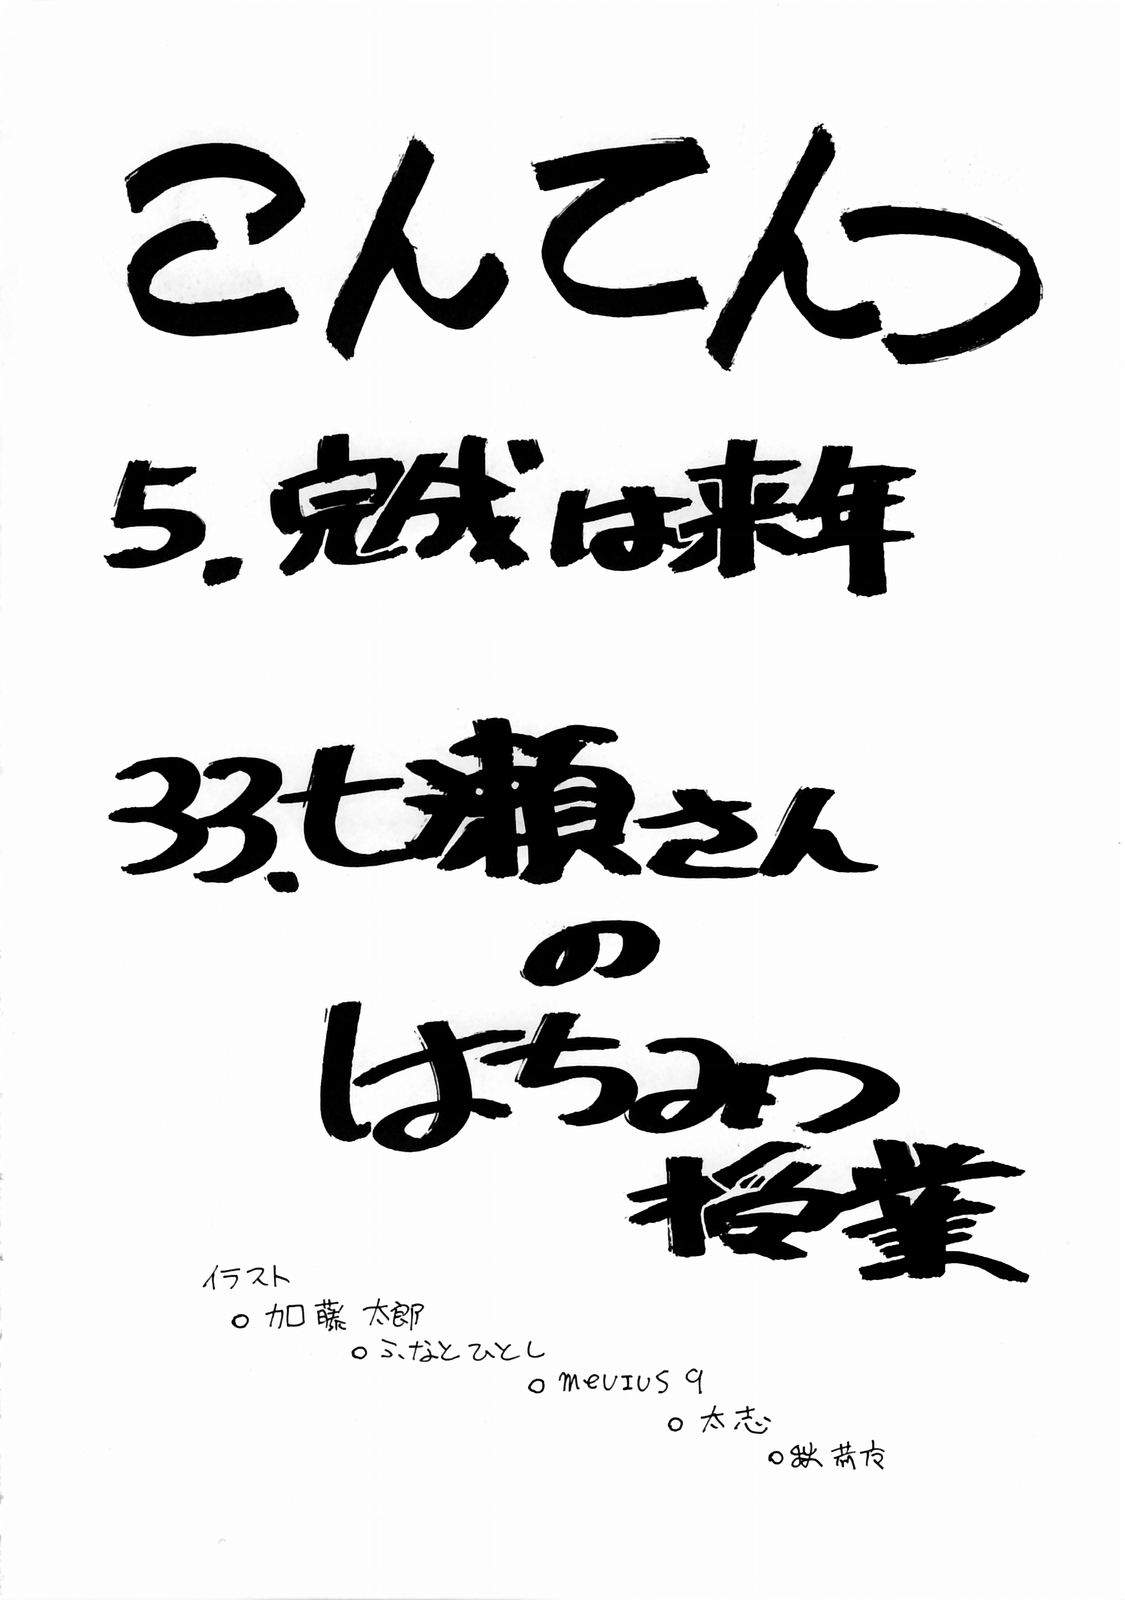 こんてんつ
5. 完成は来年
33. 七瀬さん
の
はちみつ
授業
イラスト
○ 加藤 太郎
○ ふなとひとし
○ meuIuS 9
○ 太志
○ 鉄 恭夜